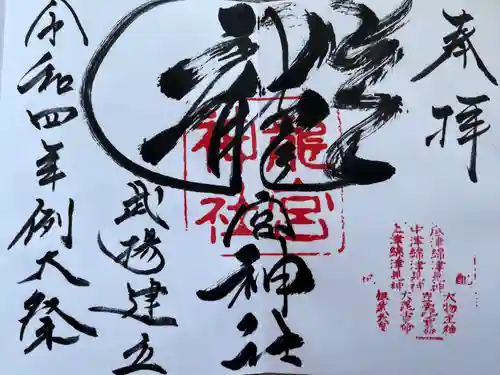 奉拝
龍
宮神社
龍宮
神社
武揚建立
令和四年例大祭
底津綿津見神
中津綿津見神
上津綿津見神